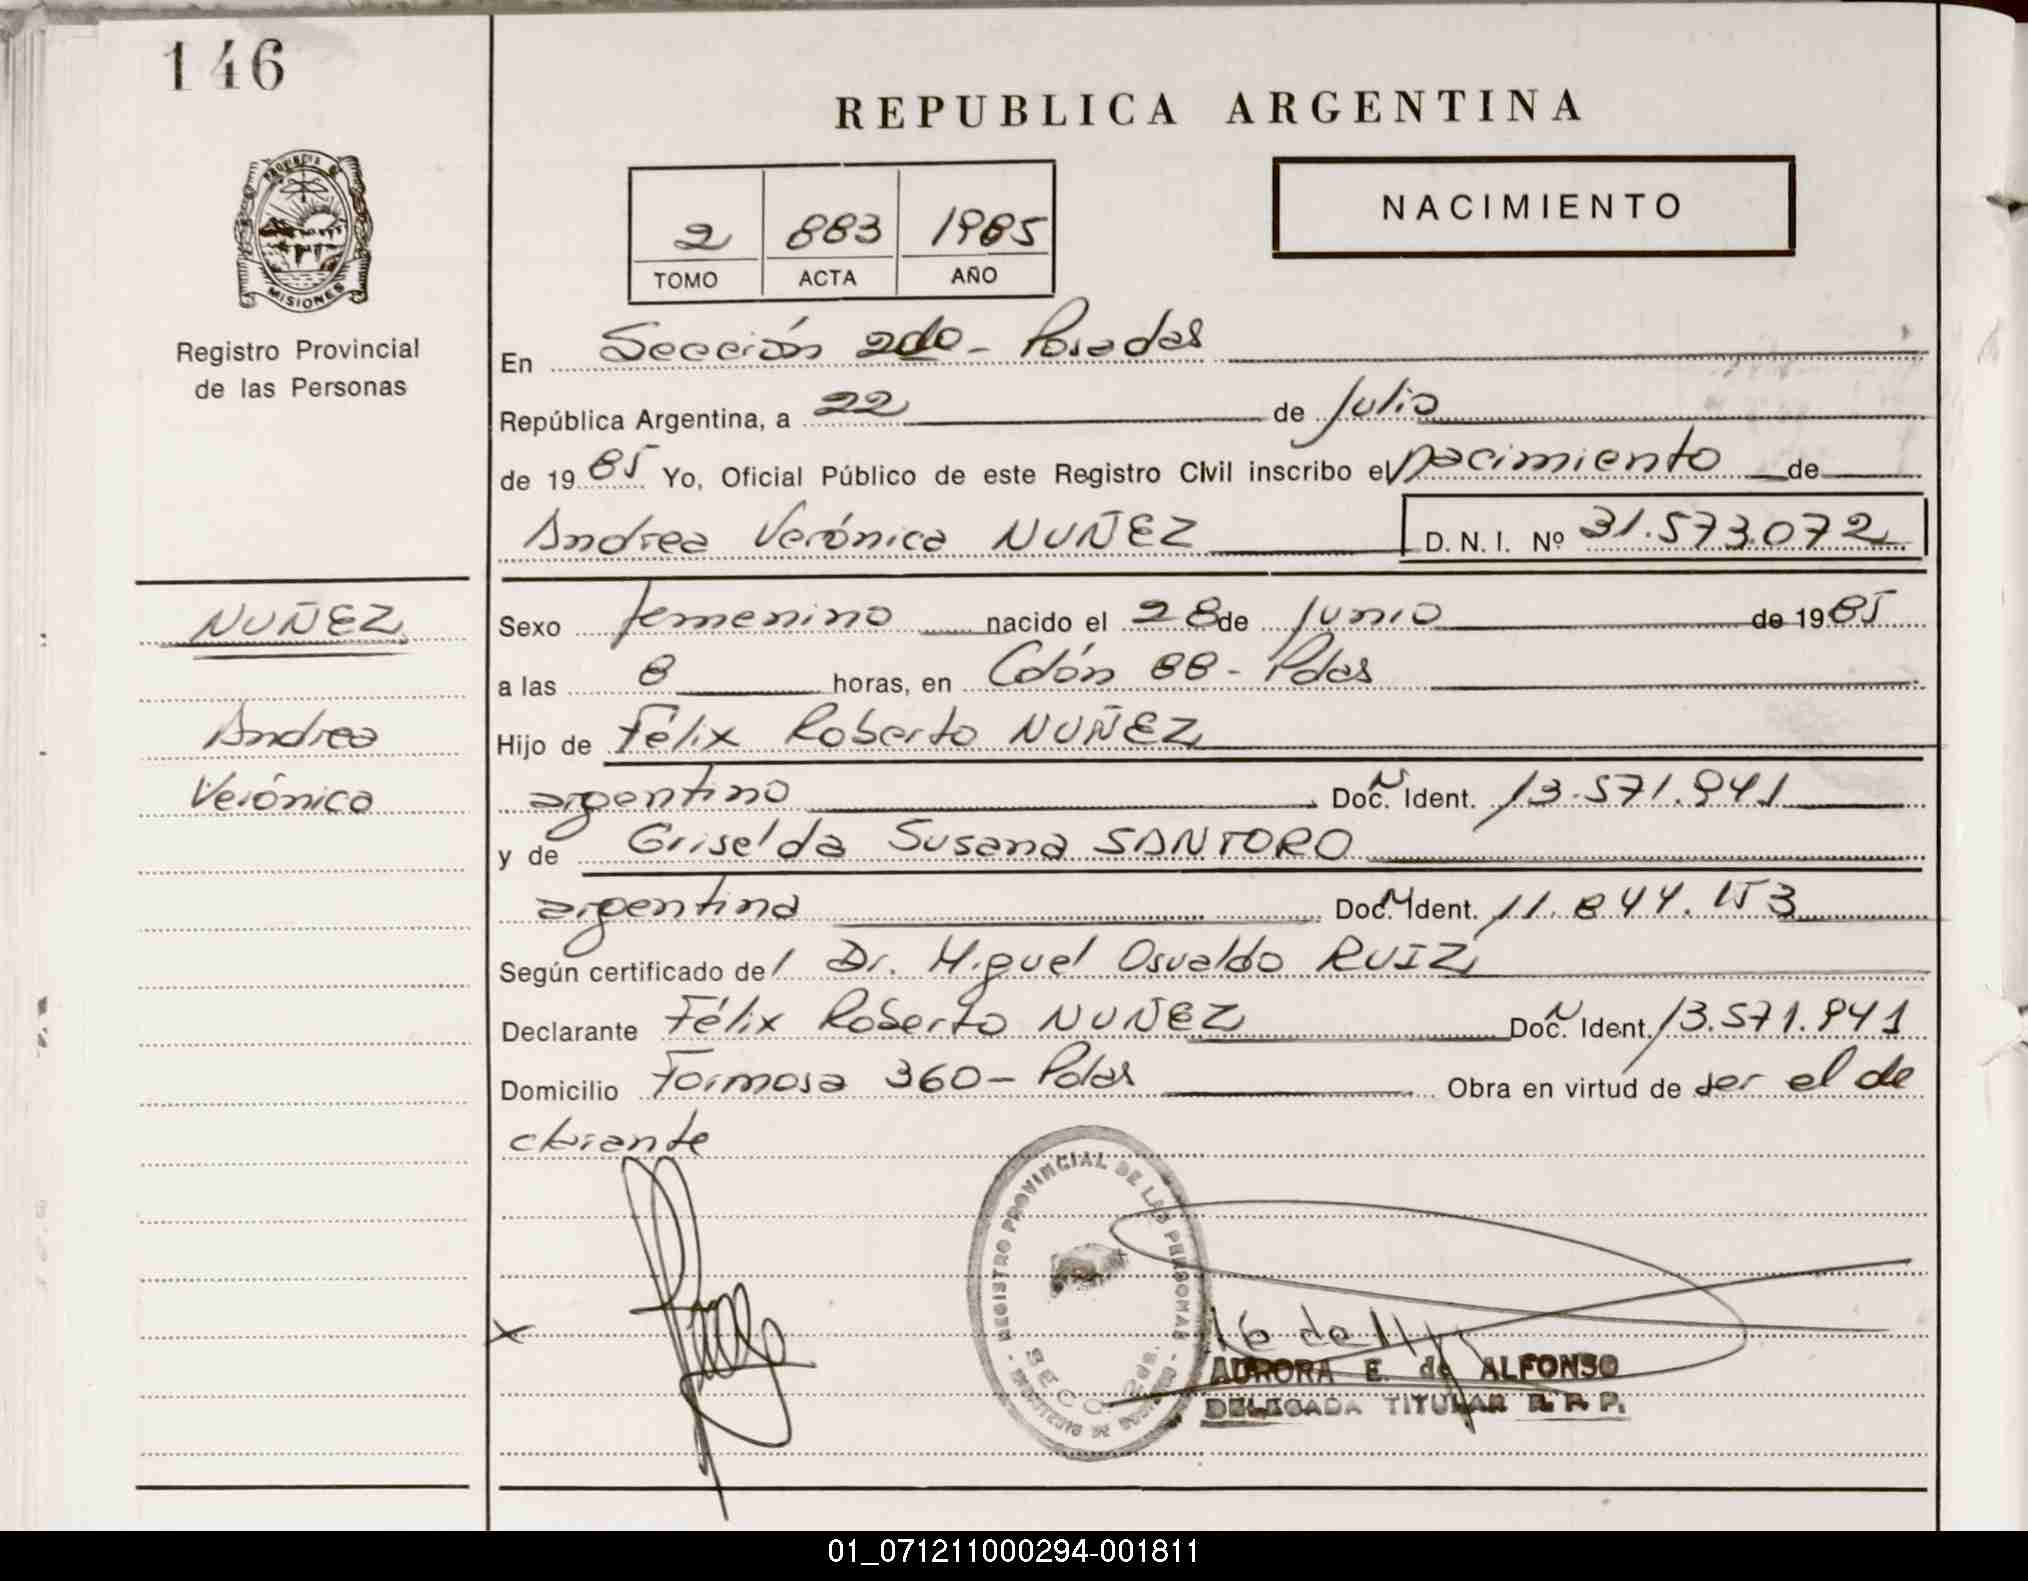 146
REPUBLICA ARGENTINA
NACIMIENTO
2 883 1985
TOMO ACTA AÑO
PROVINCIA DE
MISIONES
Registro Provincial
de las Personas
En Sección 2do - Posadas
República Argentina, a 22 de Julio
de 1985 Yo, Oficial Público de este Registro Civil inscribo el nacimiento de
Andrea Verónica NUÑEZ D. N. I. Nº 31.573.072
NUÑEZ
Andrea
Verónica
Sexo femenino nacido el 28 de Junio de 1985
a las 8 horas, en Colón 88 - Pdas
Hijo de Félix Roberto NUÑEZ
argentino Doc. Ident. 13.571.941
y de Griselda Susana SANTORO
argentina Doc. Ident. 11.844.153
Según certificado del Dr. Miguel Osvaldo RUIZ
Declarante Félix Roberto NUÑEZ Doc. Ident. 13.571.941
Domicilio Formosa 360 - Pdas Obra en virtud de ser el de
clarante
REGISTRO PROVINCIAL DE LAS PERSONAS
SECC. 2da.
AURORA E. de ALFONSO
DELEGADA TITULAR R. P. P.
01_071211000294-001811